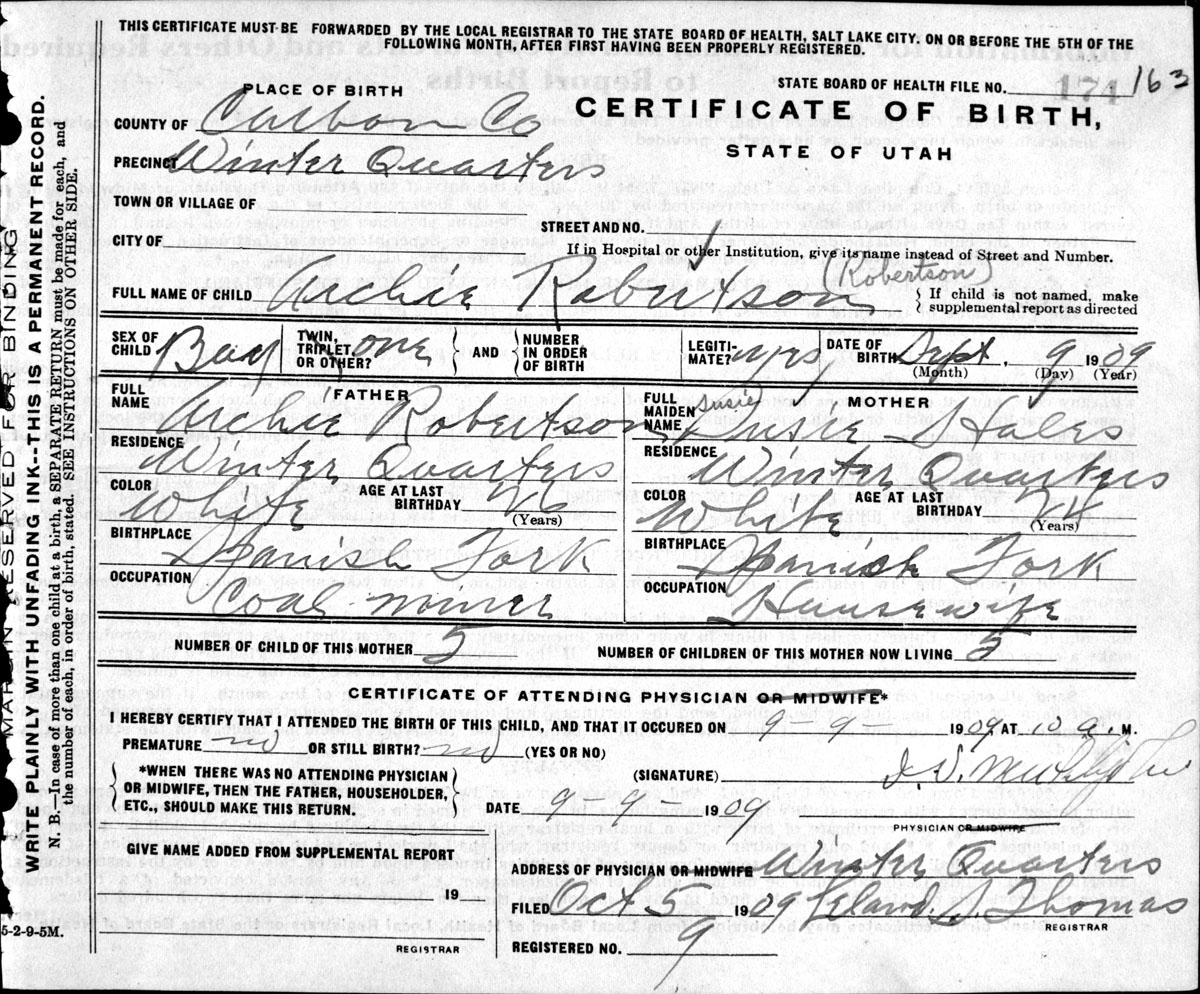 THIS CERTIFICATE MUST BE FORWARDED BY THE LOCAL REGISTRAR TO THE STATE BOARD OF HEALTH, SALT LAKE CITY, ON OR BEFORE THE 5TH OF THE
FOLLOWING MONTH, AFTER FIRST HAVING BEEN PROPERLY REGISTERED.
STATE BOARD OF HEALTH FILE NO. 174 163
PLACE OF BIRTH
CERTIFICATE OF BIRTH,
STATE OF UTAH
COUNTY OF Carbon Co
PRECINCT Winter Quarters
TOWN OR VILLAGE OF
STREET AND NO.
CITY OF
If in Hospital or other Institution, give its name instead of Street and Number.
(Robertson)
FULL NAME OF CHILD Archie Robertson { If child is not named, make
supplemental report as directed
SEX OF CHILD Boy TWIN, TRIPLET, OR OTHER? one } AND { NUMBER IN ORDER OF BIRTH LEGITIMATE? yes DATE OF BIRTH Sept. 9 1909
(Month) (Day) (Year)
FATHER
FULL NAME Archie Robertson
RESIDENCE Winter Quarters
COLOR White AGE AT LAST BIRTHDAY 26
(Years)
BIRTHPLACE Spanish Fork
OCCUPATION Coal miner
MOTHER
FULL MAIDEN NAME Susie Stales
Susie
RESIDENCE Winter Quarters
COLOR White AGE AT LAST BIRTHDAY 24
(Years)
BIRTHPLACE Spanish Fork
OCCUPATION Housewife
NUMBER OF CHILD OF THIS MOTHER 5 NUMBER OF CHILDREN OF THIS MOTHER NOW LIVING 5
CERTIFICATE OF ATTENDING PHYSICIAN OR MIDWIFE*
I HEREBY CERTIFY THAT I ATTENDED THE BIRTH OF THIS CHILD, AND THAT IT OCCURED ON 9-9- 1909 AT 10 a. M.
PREMATURE no OR STILL BIRTH? no (YES OR NO)
{ *WHEN THERE WAS NO ATTENDING PHYSICIAN
OR MIDWIFE, THEN THE FATHER, HOUSEHOLDER,
ETC., SHOULD MAKE THIS RETURN. }
(SIGNATURE)
DATE 9-9- 1909
PHYSICIAN OR MIDWIFE
GIVE NAME ADDED FROM SUPPLEMENTAL REPORT
19
REGISTRAR
ADDRESS OF PHYSICIAN OR MIDWIFE Winter Quarters
FILED Oct 5 1909 Leland. S. Thomas
REGISTRAR
REGISTERED NO. 9
5-2-9-5M.
MARGIN RESERVED FOR BINDING
WRITE PLAINLY WITH UNFADING INK--THIS IS A PERMANENT RECORD.
N. B.—In case of more than one child at a birth, a SEPARATE RETURN must be made for each, and
the number of each, in order of birth, stated. SEE INSTRUCTIONS ON OTHER SIDE.